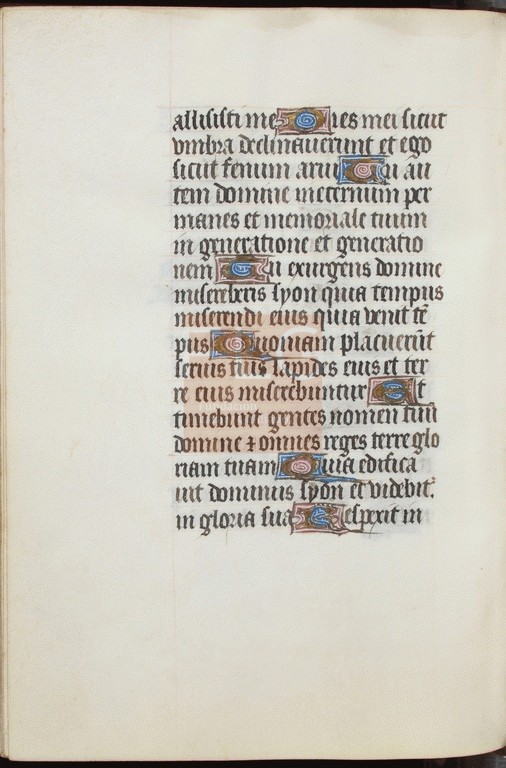 allisisti me Dies mei sicut
vmbra declinauerunt et ego
sicut fenum arui Tu au
tem domine ineternum per
manes et memoriale tuum
in generatione et generatio
nem Tu exurgens domine
misereberis syon quia tempus
miserendi eius quia venit tē
pus Quoniam placuerūt
seruis tuis lapides eius et ter
re eius miserebuntur Et
timebunt gentes nomen tuū
domine ⁊ omnes reges terre glo
riam tuam Quia edifica
uit dominus syon et videbit᷑
in gloria sua Respexit in